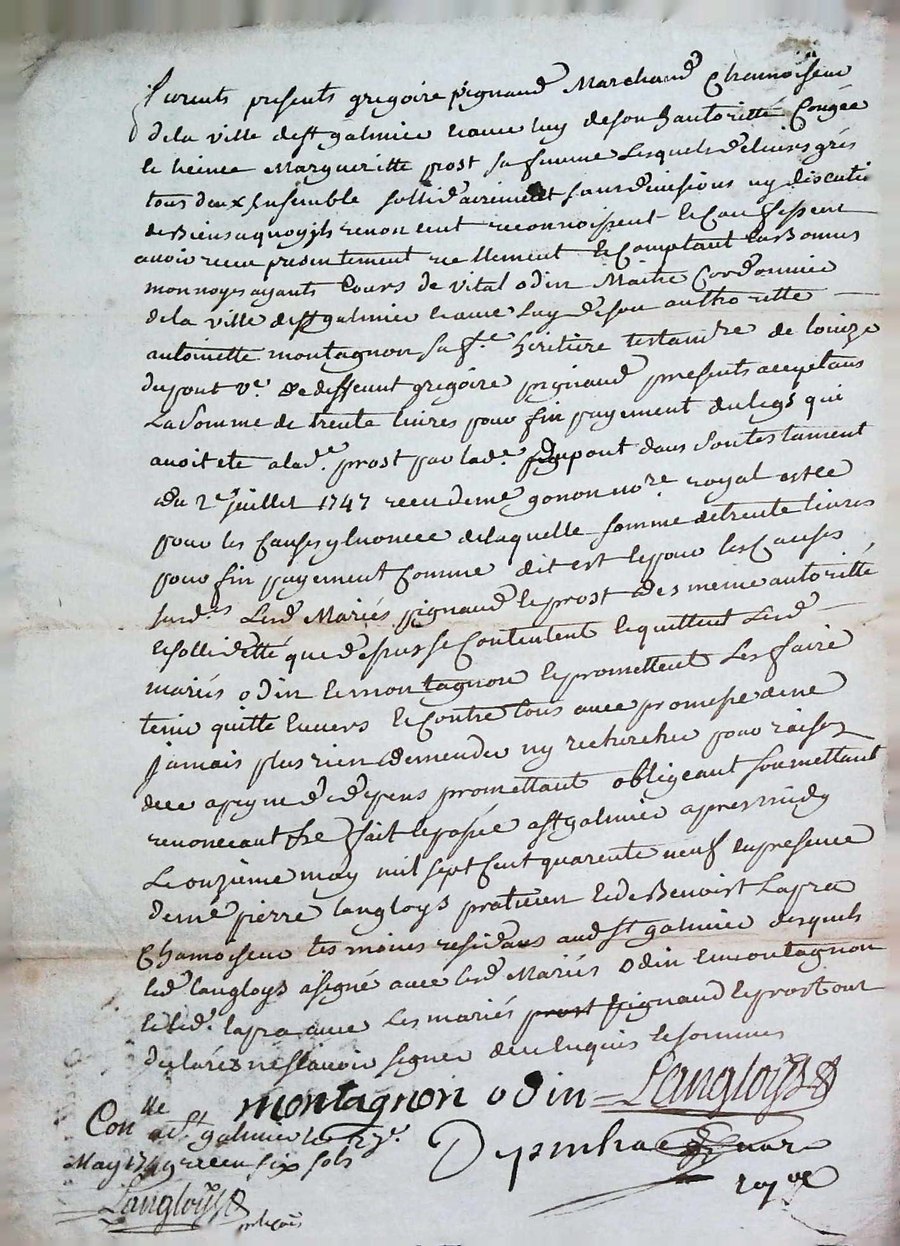 Furent presents gregoire pignaud Marchand Chamoiseur
de la ville de st galmier et avec luy de son hautoritté Congée
et licence Margueritte prost sa femme Lesquels de leurs grés
tous deux Ensemble sollidairement sans division ny discution
de Biens a quoy ils renoncent reconnoissent et Confessent
avoir receu presentement reellement et Comptant En Bonnes
monnoys ayants Cours de vital odin Maitre Cordonnier
de la ville de st galmier et avec Luy de son authoritté
antoinette montagnon sa fe. heritiere testamre de louize
dupont ve. de deffeunt gregoire pignaud presents acceptans
La somme de trente livres pour fin payement du legs qui
avoit eté a lade. prost par lade. dupont dans son testament
du 2e juillet 1747 receu de me gonon nore. royal et ce
pour les Causes y Enoncee de laquelle somme de trente livres
pour fin payement Comme dit est et pour les Causes
susds. Lesd Mariés pignaud et prost de meme autoritté
et solliditté que dessus se Contentent et quittent Lesd
mariés odin et montagnon et promettent Les faire
tenir quitte Envers et Contre tous avec promesse de ne
jamais plus rien demender ny rechercher pour raison
de ce a peyne de depens promettant obligeant soumettant
renonceant &c fait et passé a st galmier apres midy
Le onzieme may mil sept cent quarente neuf En presence
de me pierre langloys praticien et de Benoist Lapra
Chamoiseur temoins residans aud st galmier desquels
led langloys a signé avec lesd Mariés odin et montagnon
et led. lapra avec Les mariés pignaud et prost ont
declarés ne sçavoir signer de ce Enquis et sommés
montagnon odin Langloys
Conlle a st galmier le 23e.
May 1749 receu six sols
Langloys